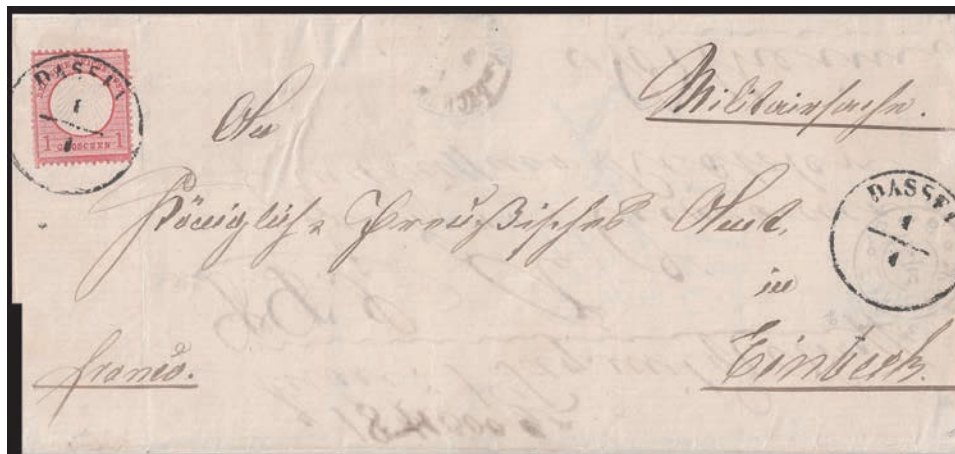 DASSEL
1
1
1 GROSCHEN 1
Militairsache.
An
Königlich Preußisches Amt,
DASSEL
1
1
in
Einbeck.
franco.